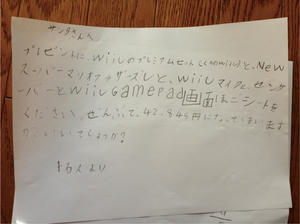 サンタさんへ
プレゼントに、wiiUのプレミアムセット(くろのwiiU)と、New
スーパーマリオブラザーズUと、wiiUマイクと、センサ
ーバーとwiiU Gamepad画面ほごシートを
ください。ぜんぶで、42,849円になってしまいます
がいいでしょうか?
より